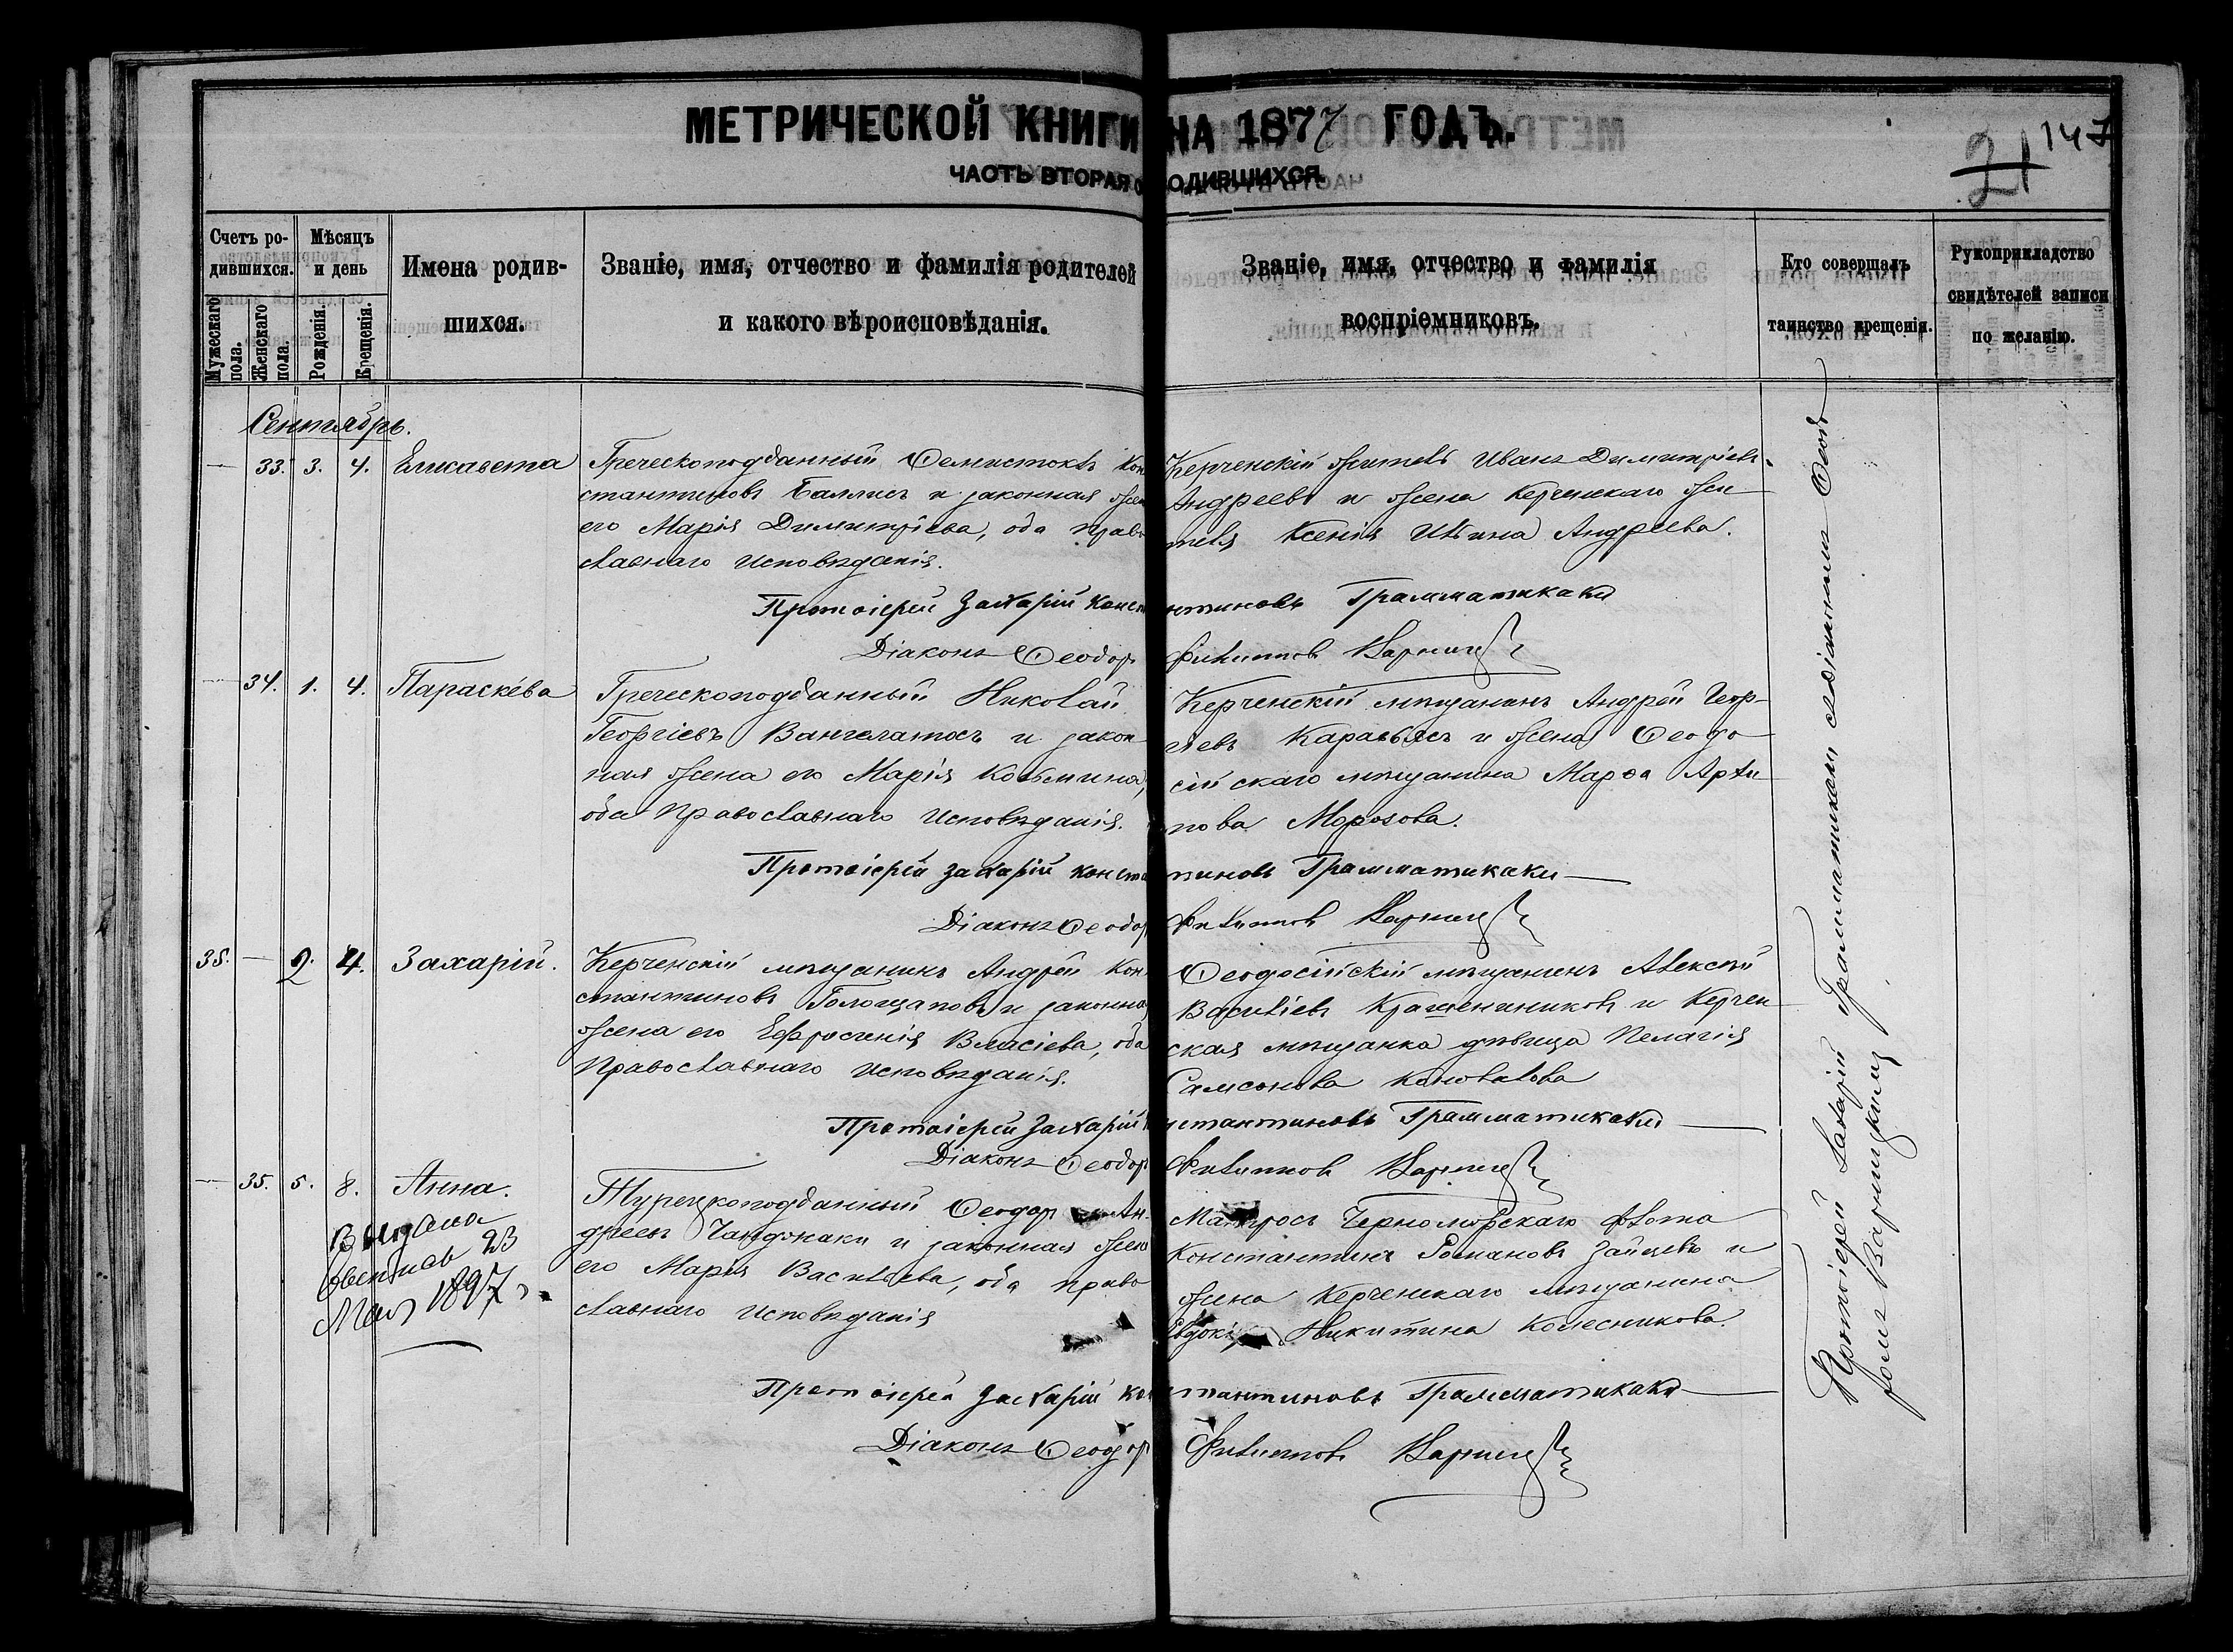 МЕТРИЧЕСКОЙ КНИГИ НА 1877 ГОДЪ.
ЧАСТЬ ВТОРАЯ О РОДИВШИХСЯ.
21 147
Счетъ ро-
дившихся.
Мужескаго пола.
Женскаго пола.
Мѣсяцъ
и день
Рожденія.
Крещенія.
Имена родив-
шихся.
Званіе, имя, отчество и фамилія родителей
и какого вѣроисповѣданія.
Званіе, имя, отчество и фамилія
воспріемниковъ.
Кто совершалъ
таинство крещенія.
Рукоприкладство
свидѣтелей записи
по желанію.
Сентябрь.
— 33. 3. 4. Елисавета
Греческоподданный Ѳемистоклъ Кон
стантиновъ Баллисъ и законная жен
его Марія Димитріева, оба прав
славнаго исповѣданія.
Керченскій житель Иванъ Димитріевъ
Андреевъ и жена Керченскаго жи
теля Ксенія Ильина Андреева.
Протоіерей Захарій Константиновъ Грамматикаки
Діаконъ Ѳеодоръ Филипповъ
— 34. 1. 4. Параскéва
Греческоподданный Николай
Георгіевъ Вангелатосъ и закон
ная жена его Марія Козьмина,
оба Православнаго исповѣданія.
Керченскій мѣщанинъ Андрей Геор-
гіевъ и жена Ѳеодо
сійскаго мѣщанина Марѳа Архи
пова Морозова.
Протоіерей Захарій Константиновъ Грамматикаки
Діаконъ Ѳеодоръ Филипповъ
35. — 2. 4. Захарій.
Керченскій мѣщанинъ Андрей Кон
стантиновъ Голощаповъ и законная
жена его Ефросинія Власіева, оба
Православнаго исповѣданія.
Ѳеодосійскій мѣщанинъ Алексѣй
Васильевъ Крашенинниковъ и Керчен
ская мѣщанка дѣвица Пелагія
Самсонова Коновалова
Протоіерей Захарій Константиновъ Грамматикаки
Діаконъ Ѳеодоръ Филипповъ
— 35. 5. 8. Анна.
Выдана
23
Мая 1897 г.
Турецкоподданный Ѳеодоръ Ан-
дреевъ Чанджаки и законная жена
его Марія Васильева, оба право
славнаго исповѣданія
Матросъ Черноморскаго флота
Константинъ Романовъ Зайцевъ и
жена Керченскаго мѣщанина
Евдокія Никитина Колесникова.
Протоіерей Захарій Константиновъ Грамматикаки
Діаконъ Ѳеодоръ Филипповъ
Протоіерей Захарій Грамматикаки съ діакономъ Ѳеодо
ромъ Варницкимъ